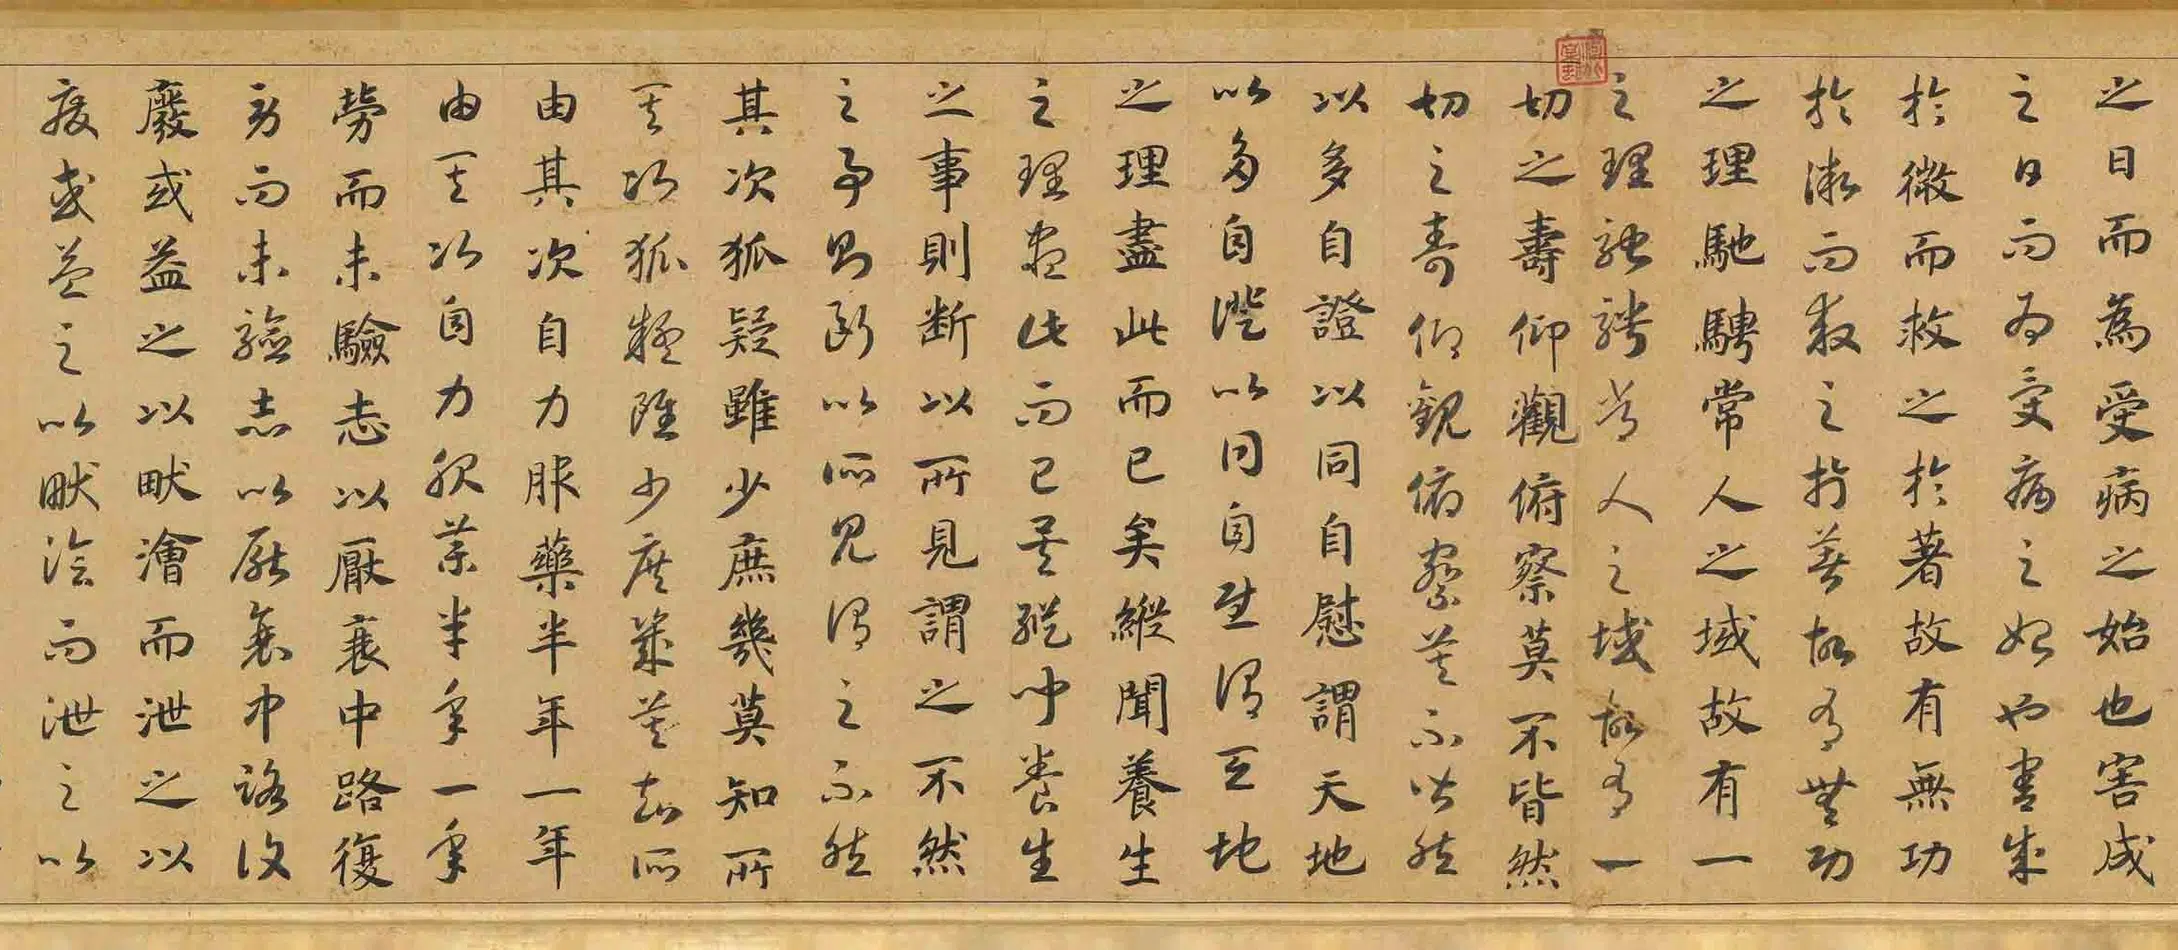 之日而為受病之始也害成
之日而為受病之始也害成
於微而救之於著故有無功
於微而救之於著故有無功
之理馳騁常人之域故有一
之理馳騁常人之域故有一
切之壽仰觀俯察莫不皆然
切之壽仰觀俯察莫不皆然
以多自證以同自慰謂天地
以多自證以同自慰謂天地
之理盡此而已矣縱聞養生
之理盡此而已矣縱聞養生
之事則断以所見謂之不然
之事則断以所見謂之不然
其次狐疑雖少庶幾莫知所
其次狐疑雖少庶幾莫知所
由其次自力服藥半年一年
由其次自力服藥半年一年
勞而未驗志以厭衰中路復
勞而未驗志以厭衰中路復
廢或益之以畎澮而泄之以
廢或益之以畎澮而泄之以